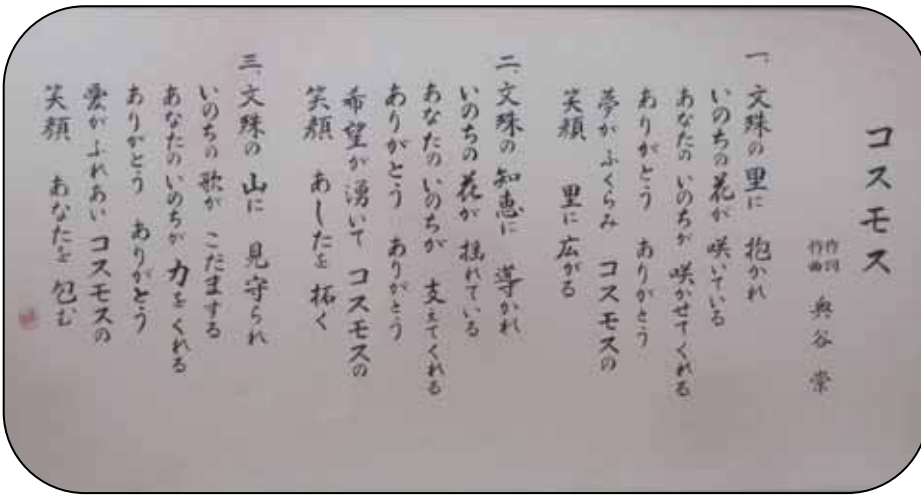 コスモス
作詞
作曲 奥谷 崇
一、文殊の里に 抱かれ
いのちの花が 咲いている
あなたの いのちが 咲かせてくれる
ありがとう ありがとう
夢が ふくらみ コスモスの
笑顔 里に広がる
二、文殊の知恵に 導かれ
いのちの花が 揺れている
あなたのいのちが 支えてくれる
ありがとう ありがとう
希望が湧いて コスモスの
笑顔 あしたを 拓く
三、文殊の 山に 見守られ
いのちの歌が こだまする
あなたのいのちが 力をくれる
ありがとう ありがとう
愛が ふれあい コスモスの
笑顔 あなたを 包む